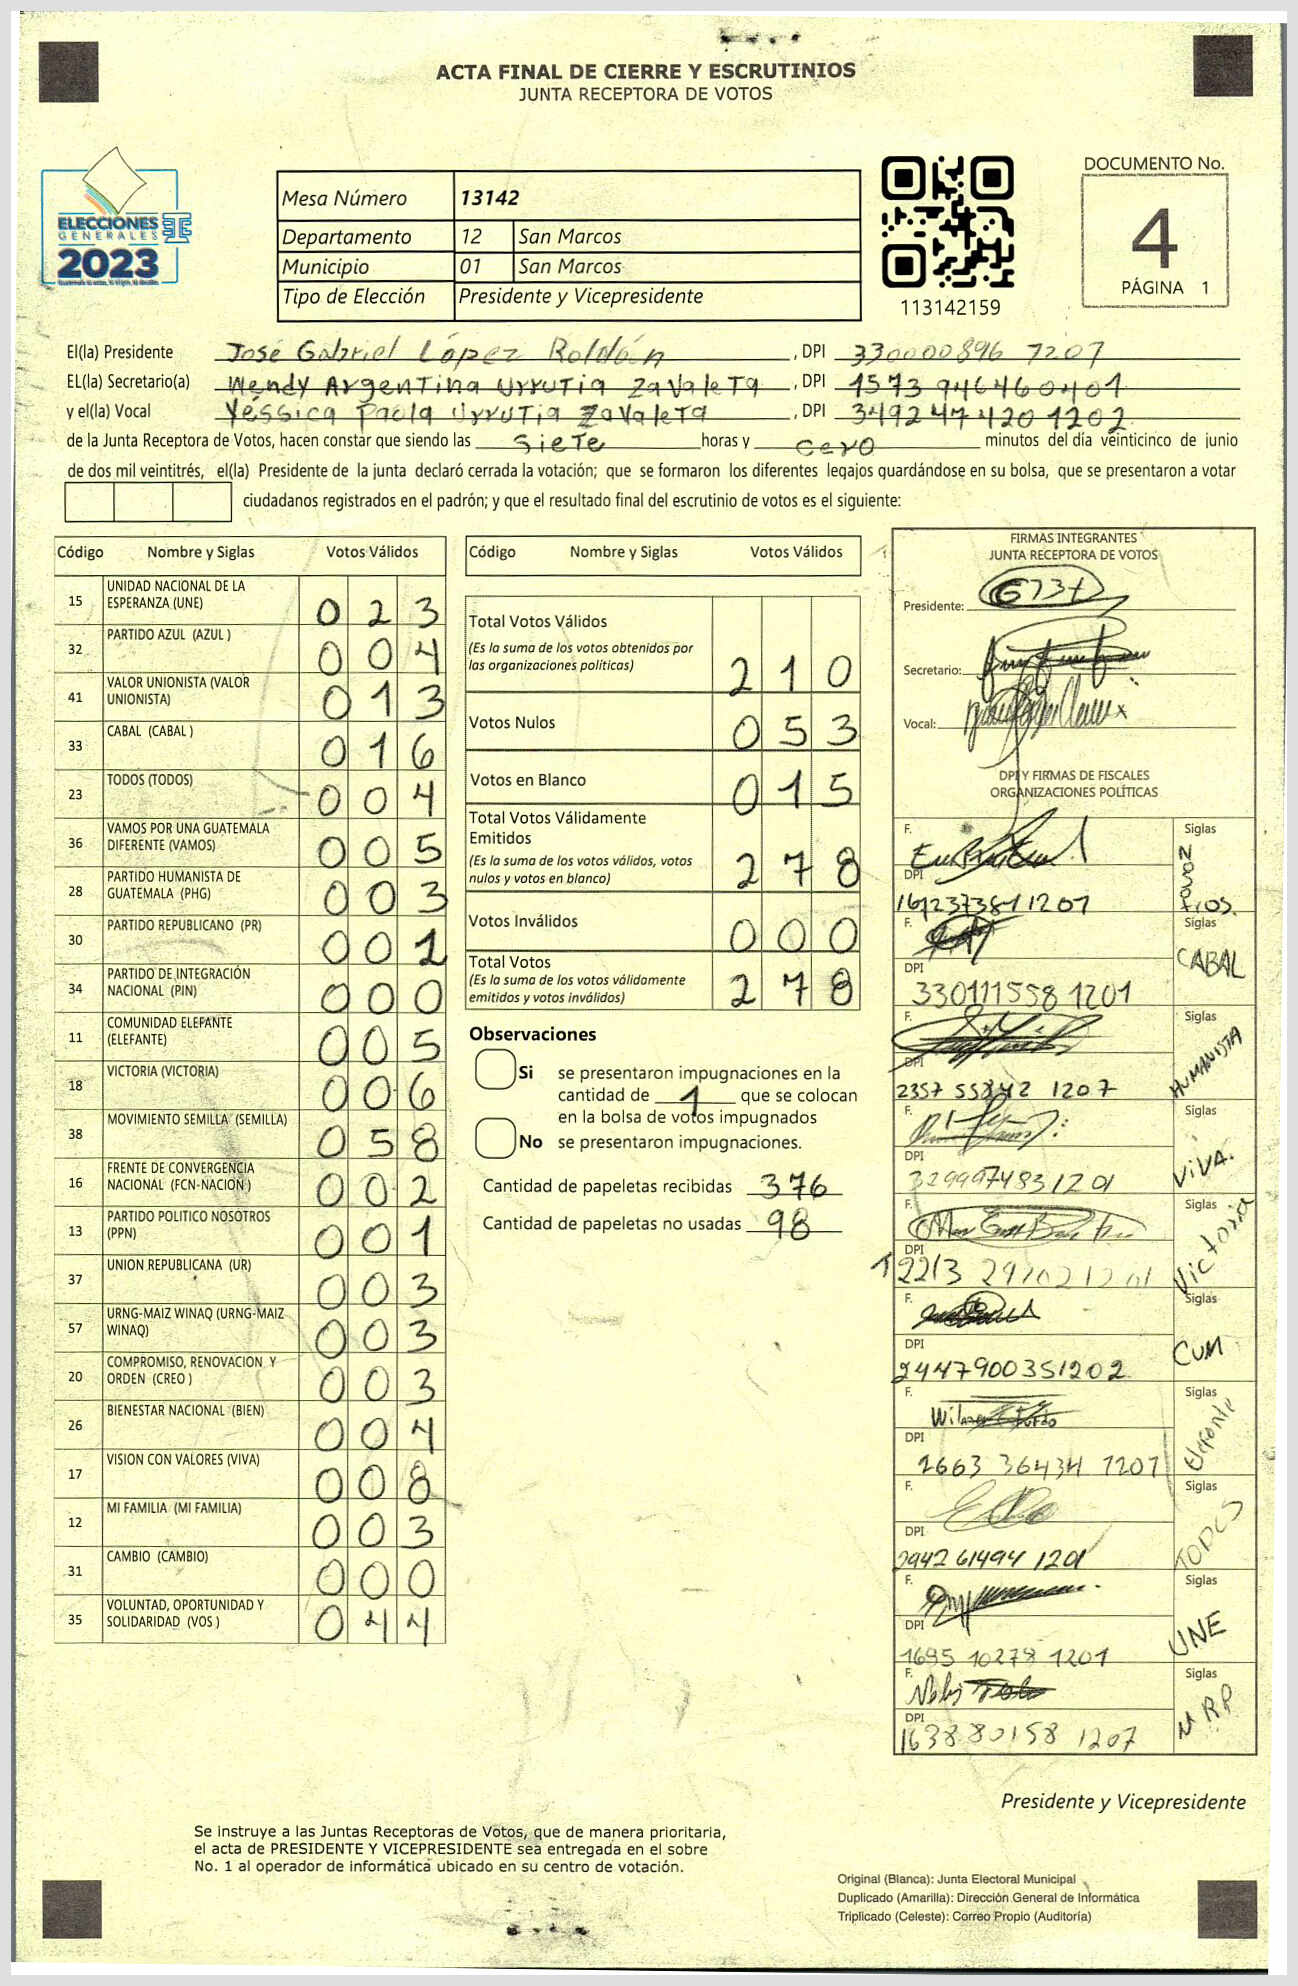 ACTA FINAL DE CIERRE Y ESCRUTINIOS
JUNTA RECEPTORA DE VOTOS
ELECCIONES
GENERALES
2023
Mesa Número 13142
Departamento 12 San Marcos
Municipio 01 San Marcos
Tipo de Elección Presidente y Vicepresidente
113142159
DOCUMENTO No.
4
PÁGINA 1
El(la) Presidente José Gabriel López Roldán, DPI 330000896 1207
EL(la) Secretario(a) Wendy Argentina Urrutia Zavaleta, DPI 1573 946460401
y el(la) Vocal Yéssica Paola Urrutia Zavaleta, DPI 3492 47 420 1202
de la Junta Receptora de Votos, hacen constar que siendo las siete horas y cero minutos del día veinticinco de junio
de dos mil veintitrés, el(la) Presidente de la junta declaró cerrada la votación; que se formaron los diferentes legajos guardándose en su bolsa, que se presentaron a votar
ciudadanos registrados en el padrón; y que el resultado final del escrutinio de votos es el siguiente:
Código Nombre y Siglas Votos Válidos
15 UNIDAD NACIONAL DE LA ESPERANZA (UNE) 023
32 PARTIDO AZUL (AZUL ) 004
41 VALOR UNIONISTA (VALOR UNIONISTA) 013
33 CABAL (CABAL ) 016
23 TODOS (TODOS) 004
36 VAMOS POR UNA GUATEMALA DIFERENTE (VAMOS) 005
28 PARTIDO HUMANISTA DE GUATEMALA (PHG) 003
30 PARTIDO REPUBLICANO (PR) 001
34 PARTIDO DE INTEGRACIÓN NACIONAL (PIN) 000
11 COMUNIDAD ELEFANTE (ELEFANTE) 005
18 VICTORIA (VICTORIA) 006
38 MOVIMIENTO SEMILLA (SEMILLA) 058
16 FRENTE DE CONVERGENCIA NACIONAL (FCN-NACION ) 002
13 PARTIDO POLITICO NOSOTROS (PPN) 001
37 UNION REPUBLICANA (UR) 003
57 URNG-MAIZ WINAQ (URNG-MAIZ WINAQ) 003
20 COMPROMISO, RENOVACION Y ORDEN (CREO ) 003
26 BIENESTAR NACIONAL (BIEN) 004
17 VISION CON VALORES (VIVA) 008
12 MI FAMILIA (MI FAMILIA) 003
31 CAMBIO (CAMBIO) 000
35 VOLUNTAD, OPORTUNIDAD Y SOLIDARIDAD (VOS ) 044
Código Nombre y Siglas Votos Válidos
Total Votos Válidos 210
(Es la suma de los votos obtenidos por
las organizaciones políticas)
Votos Nulos 053
Votos en Blanco 015
Total Votos Válidamente
Emitidos 278
(Es la suma de los votos válidos, votos
nulos y votos en blanco)
Votos Inválidos 000
Total Votos 278
(Es la suma de los votos válidamente
emitidos y votos inválidos)
Observaciones
Si se presentaron impugnaciones en la
cantidad de 1 que se colocan
en la bolsa de votos impugnados
No se presentaron impugnaciones.
Cantidad de papeletas recibidas 376
Cantidad de papeletas no usadas 98
FIRMAS INTEGRANTES
JUNTA RECEPTORA DE VOTOS
Presidente:
Secretario:
Vocal:
DPI Y FIRMAS DE FISCALES
ORGANIZACIONES POLÍTICAS
F. Siglas
DPI
F. Siglas CABAL
DPI
330111558 1201
F. Siglas HUMANISTA
DPI
2357 55842 1207
F. Siglas VIVA.
DPI
329997483 1201
F. Siglas Victoria
DPI
F. Siglas CUM
DPI
2447900351202
F. Siglas Elefante
DPI
1663 36434 1201
F. Siglas TODOS
DPI
2942 61494 1201
F. Siglas UNE
DPI
1695 10278 1201
F. Siglas
DPI
1638 80158 1207
Presidente y Vicepresidente
Se instruye a las Juntas Receptoras de Votos, que de manera prioritaria,
el acta de PRESIDENTE Y VICEPRESIDENTE sea entregada en el sobre
No. 1 al operador de informática ubicado en su centro de votación.
Original (Blanca): Junta Electoral Municipal
Duplicado (Amarilla): Dirección General de Informática
Triplicado (Celeste): Correo Propio (Auditoría)